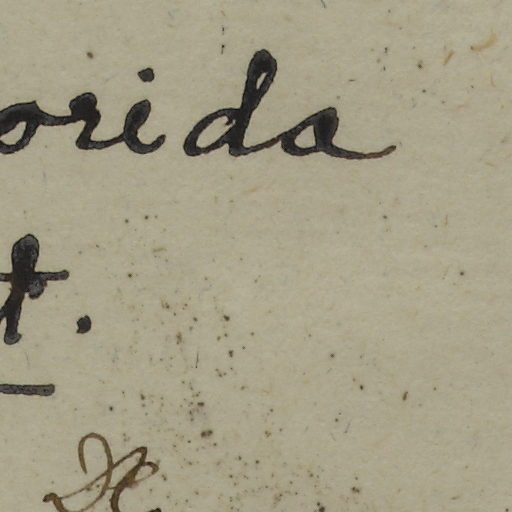 orida
t.